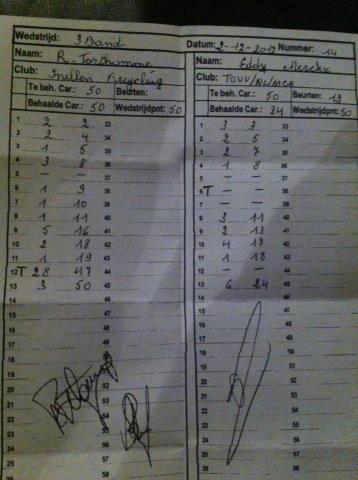 Wedstrijd: 3 Band
Naam: R.
Club: Snellen Recycling
Te beh. Car.: 50 Beurten:
Behaalde Car.: 50 Wedstrijdpnt: 50
1 2 2 33
2 2 4 34
3 1 5 35
4 3 8 36
5 — — 37
6 1 9 38
7 1 10 39
8 1 11 40
9 5 16 41
10 2 18 42
11 1 19 43
12 T 28 47 44
13 3 50 45
14 46
15 47
16 48
17 49
18 50
19 51
20 52
21 53
22 54
23 55
24 56
25 57
58
Datum: 2-12-2012 Nummer: 14
Naam: Eddy Merckx
Club: TOVV/NL/MCA
Te beh. Car.: 50 Beurten: 13
Behaalde Car.: 24 Wedstrijdpnt: 50
1 3 3 33
2 2 5 34
3 2 7 35
4 1 8 36
5 — — 37
6 T — — 38
7 — — 39
8 3 11 40
9 2 13 41
10 4 17 42
11 1 18 43
12 — — 44
13 6 24 45
14 46
15 47
16 48
17 49
18 50
19 51
20 52
21 53
22 54
23 55
24 56
25 57
26 58